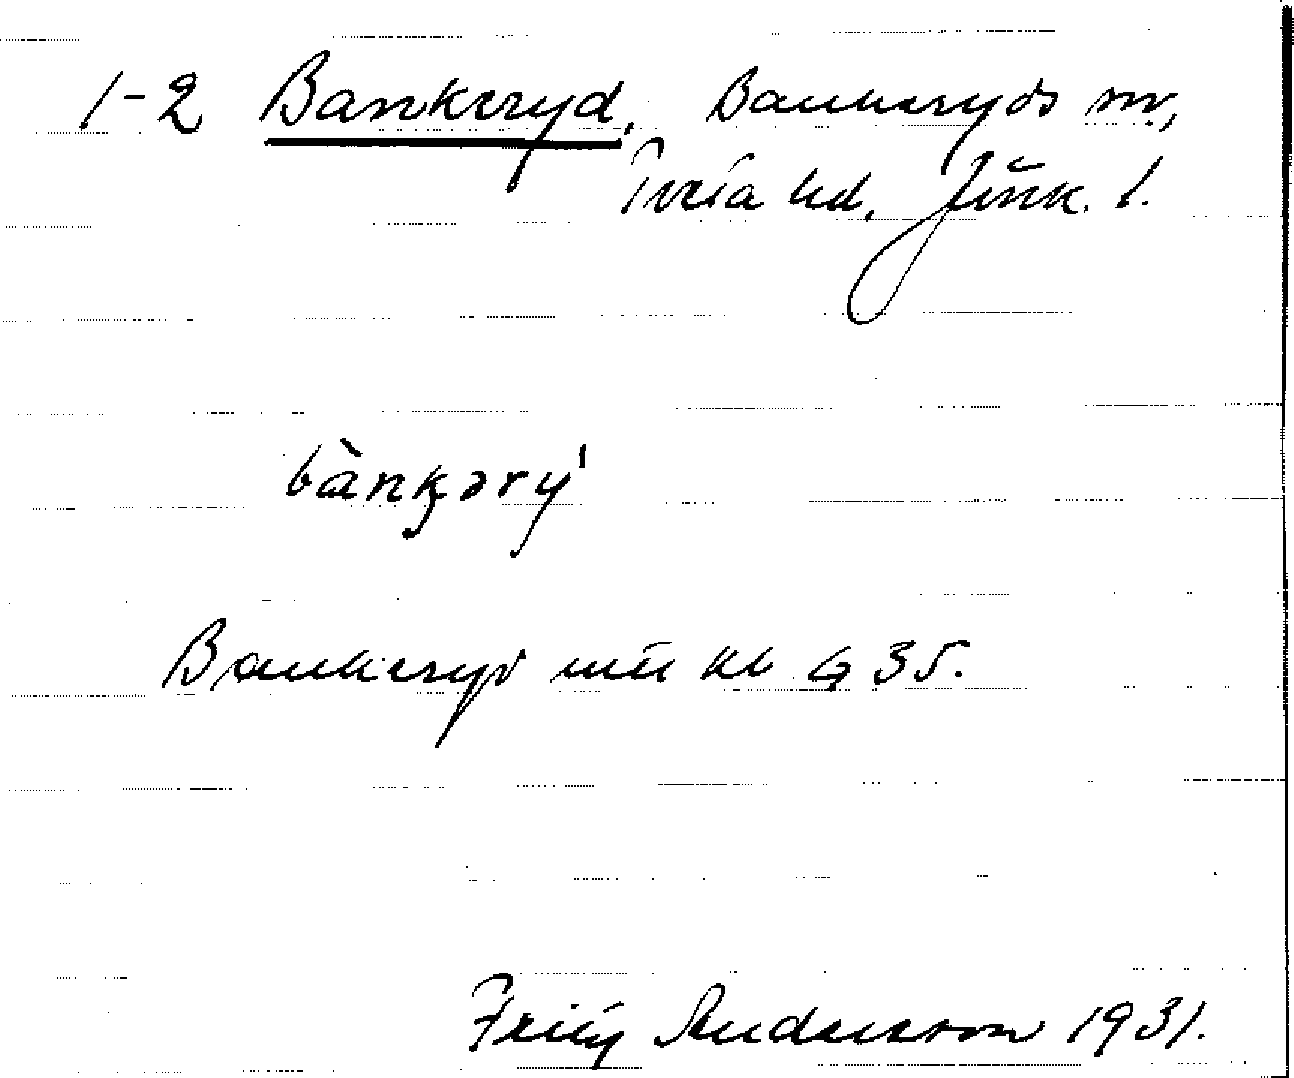 1-2 Bankeryd, Bankeryds sn,
Tveta hd, Jönk. l.
bànkəry'
Bankeryd kb G 35.
Fritz Anderson 1931.